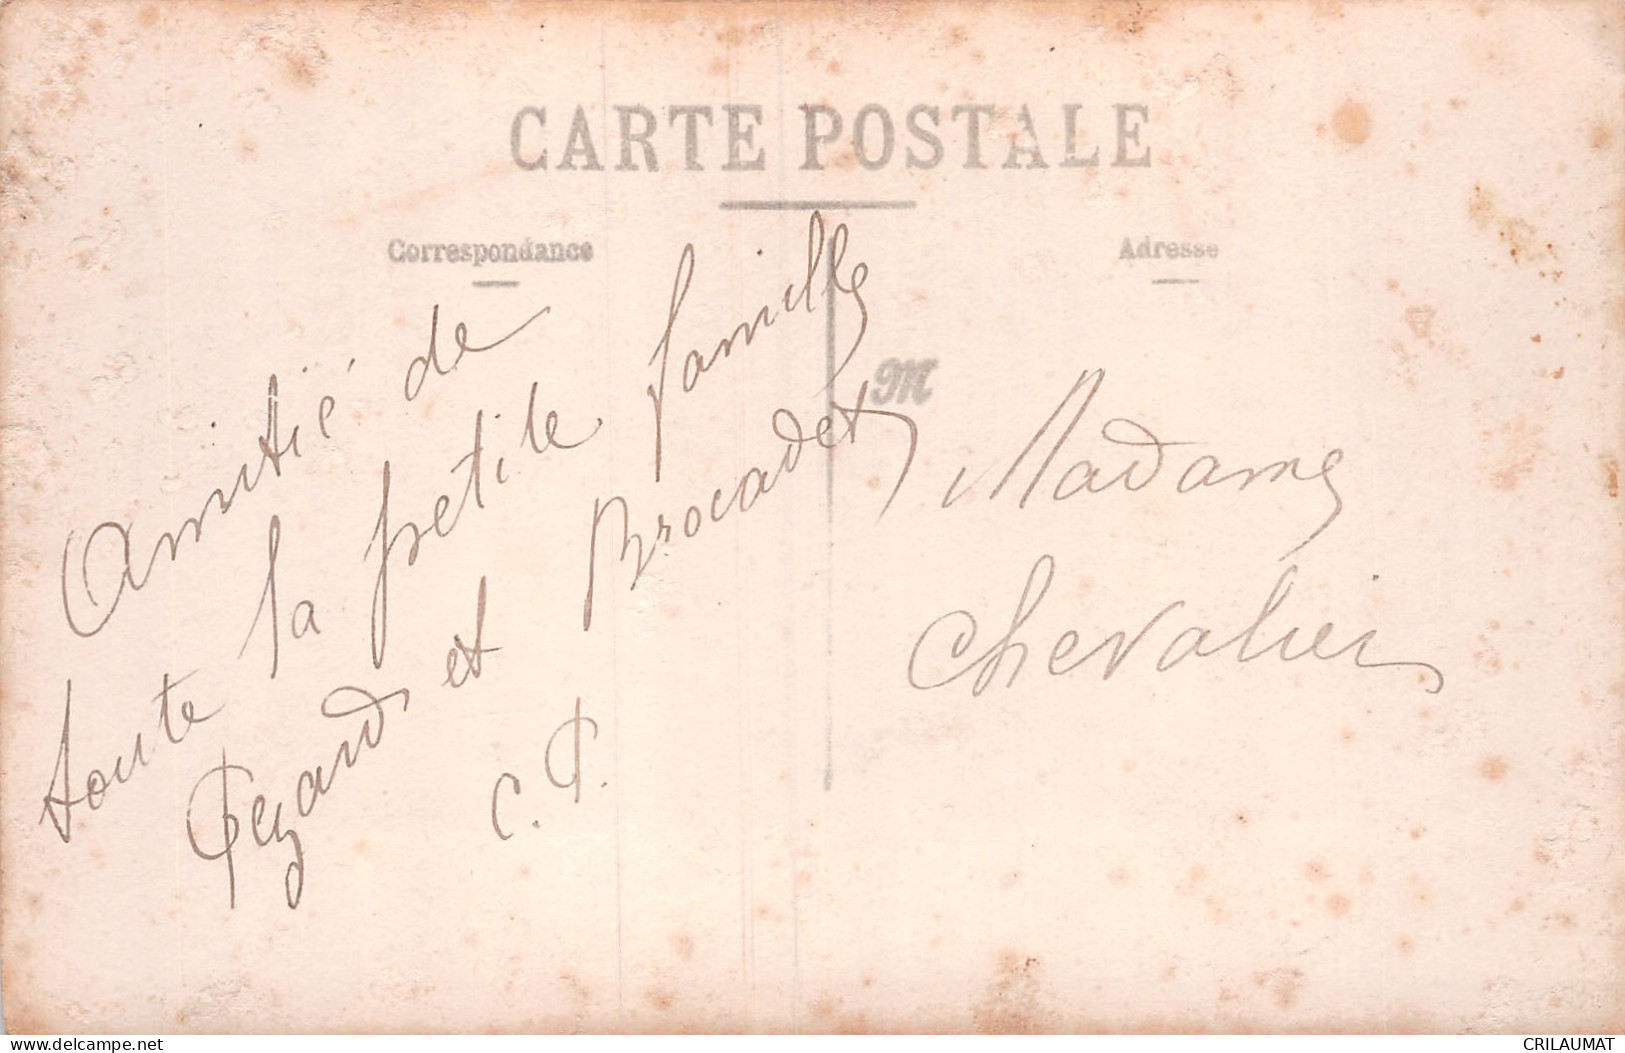 CARTE POSTALE
Correspondance
Adresse
Amitié de
toute la petite famille
Pezard et Brocadet
C. P.
M
Madame
Chevalier
www.delcampe.net
CRILAUMAT